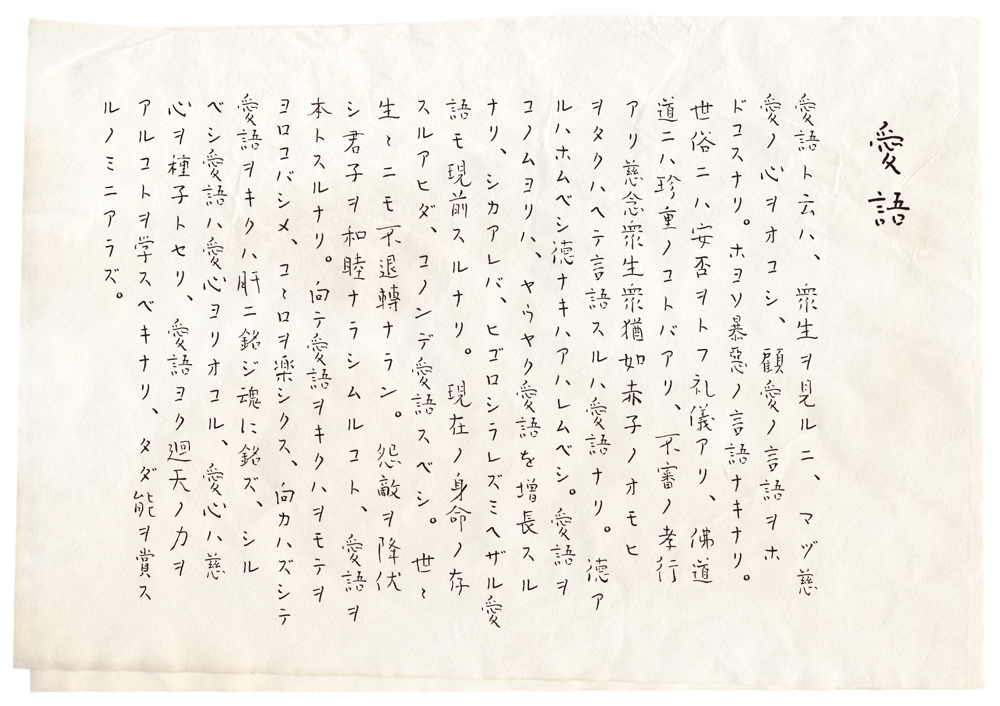 愛語
愛語ト云ハ、衆生ヲ見ルニ、マヅ慈
愛ノ心ヲオコシ、顧愛ノ言語ヲホ
ドコスナリ。ホヨソ暴惡ノ言語ナキナリ。
世俗ニハ安否ヲトフ礼儀アリ、佛道
道ニハ珍重ノコトバアリ、不審ノ孝行
アリ慈念衆生衆猶如赤子ノオモヒ
ヲタクハヘテ言語スルハ愛語ナリ。徳ア
ルハホムベシ徳ナキハアハレムベシ。愛語ヲ
コノムヨリハ、ヤウヤク愛語を増長スル
ナリ、シカアレバ、ヒゴロシラレズミヘザル愛
語モ現前スルナリ。現在ノ身命ノ存
スルアヒダ、コノンデ愛語スベシ。世〻
生〻ニモ不退轉ナラン。怨敵ヲ降伏
シ君子ヲ和睦ナラシムルコト、愛語ヲ
本トスルナリ。向テ愛語ヲキクハヲモテヲ
ヨロコバシメ、コ〻ロヲ楽シクス、向カハズシテ
愛語ヲキクハ肝ニ銘ジ魂に銘ズ、シル
ベシ愛語ハ愛心ヨリオコル、愛心ハ慈
心ヲ種子トセリ、愛語ヨク廻天ノ力ヲ
アルコトヲ学スベキナリ、タダ能ヲ賞ス
ルノミニアラズ。